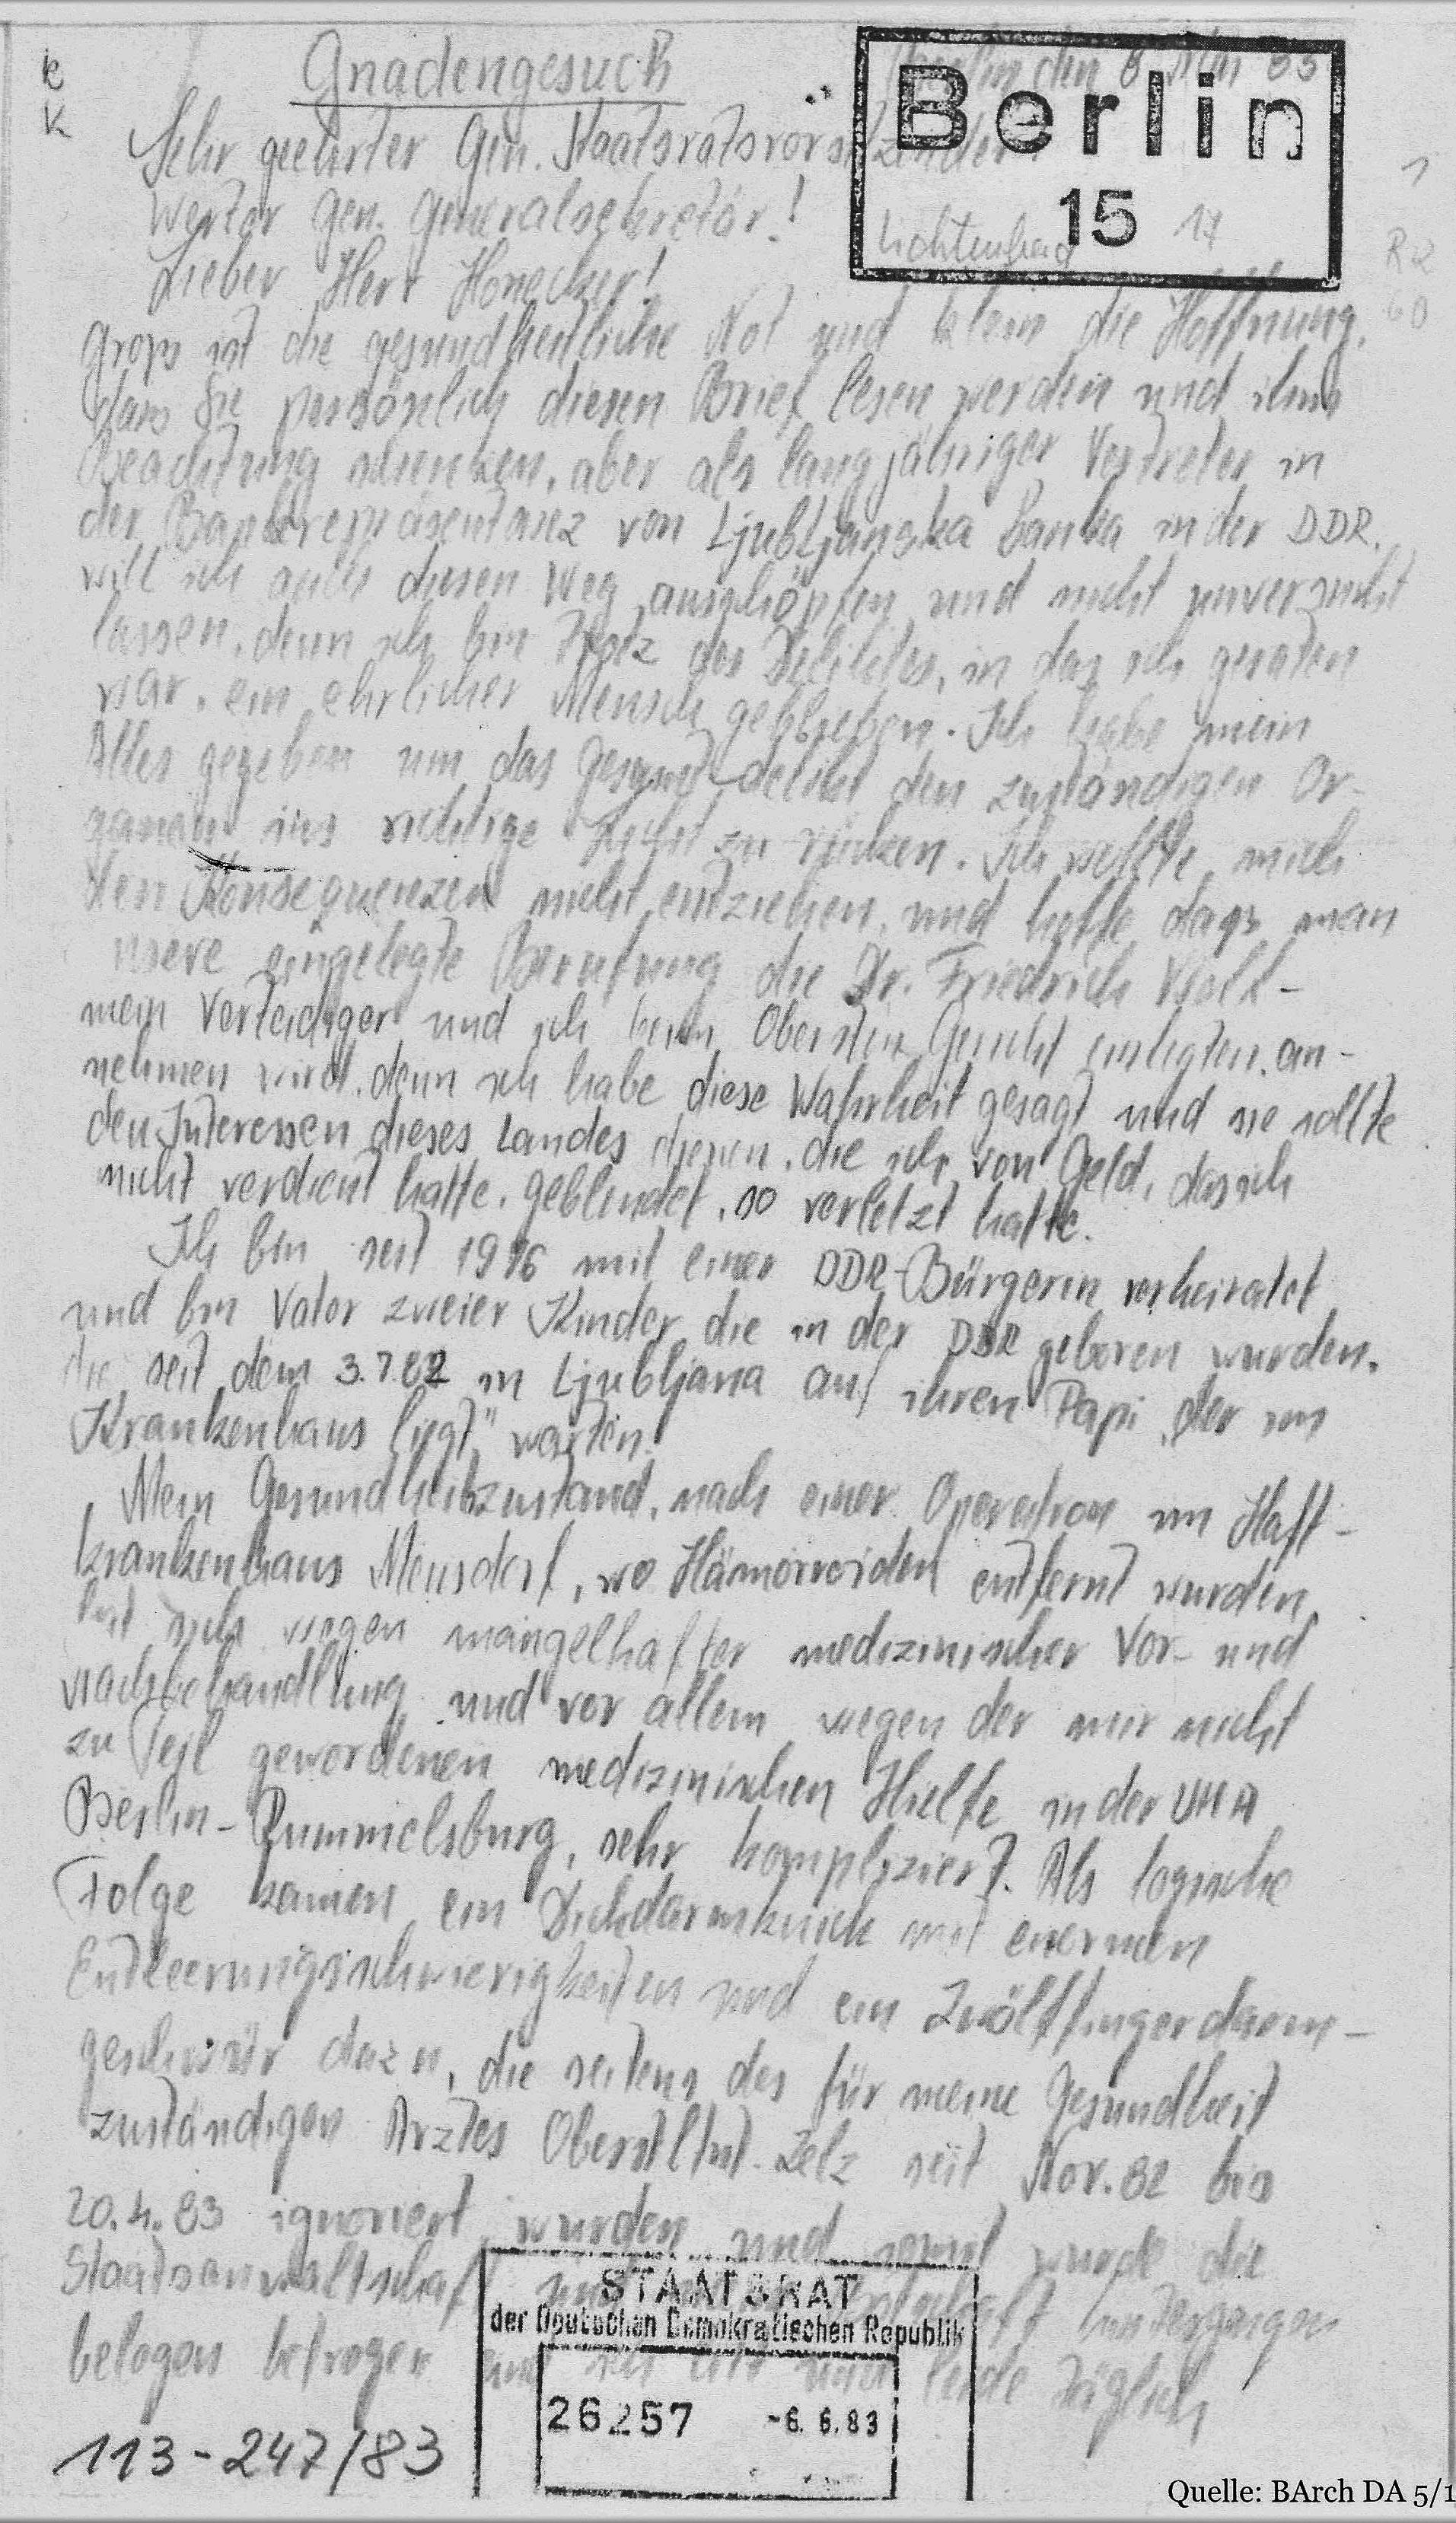 Gnadengesuch
Berlin
15
17
Lichtenberg
Sehr geehrter Gen. Staatsratsvorsitzender
Werter Gen. Generalsekretär!
Lieber Herr Honecker!
Gross ist die gesundheitliche Not und klein die Hoffnung,
dass Sie persönlich diesen Brief lesen werden und ihm
Beachtung schenken, aber als langjähriger Vertreter in
der Bankrepräsentanz von Ljubljanska banka in der DDR,
will ich auch diesen Weg ausschöpfen und nicht unversucht
lassen, denn ich bin trotz des Deliktes, in das ich geraten
war, ein ehrlicher Mensch geblieben. Ich habe mein
Alles gegeben um das Gesamtdelikt den zuständigen Or-
ganen ins richtige Licht zu rücken. Ich wollte mich
den Konsequenzen nicht entziehen, und hoffe dass man
unsere eingelegte Berufung die Dr. Friedrich Wolff -
mein Verteidiger und ich beim Obersten Gericht einlegten, an-
nehmen wird, denn ich habe diese Wahrheit gesagt und sie sollte
den Interessen dieses Landes dienen, die ich von Geld, das ich
nicht verdient hatte, geblendet, so verletzt hatte.
Ich bin seit 1976 mit einer DDR-Bürgerin verheiratet
und bin Vater zweier Kinder die in der DDR geboren wurden,
die seit dem 3.7.82 in Ljubljana auf ihren Papi „der im
Krankenhaus liegt" warten.
Mein Gesundheitszustand, nach einer Operation im Haft-
krankenhaus Meusdorf, wo Hämorroiden entfernt wurden,
hat sich wegen mangelhafter medizinischer Vor- und
Nachbehandlung und vor allem wegen der mir nicht
zu Teil gewordenen medizinischen Hielfe in der UHA
Berlin-Rummelsburg, sehr kompliziert. Als logische
Folge kamen ein Dickdarmknick mit enormen
Entleerungsschwierigkeiten und ein Zwölffingerdarm-
geschwür dazu, die seitens des für meine Gesundheit
zuständigen Arztes Oberstltnt. Zelz seit Nov. 82 bis
20.4.83 ignoriert wurden und somit wurde die
Staatsanwaltschaft hintergangen
belogen betrogen und ich leide täglich
STAATSRAT
der Deutschen Demokratischen Republik
26257 -6. 6. 83
113-247/83
Quelle: BArch DA 5/1